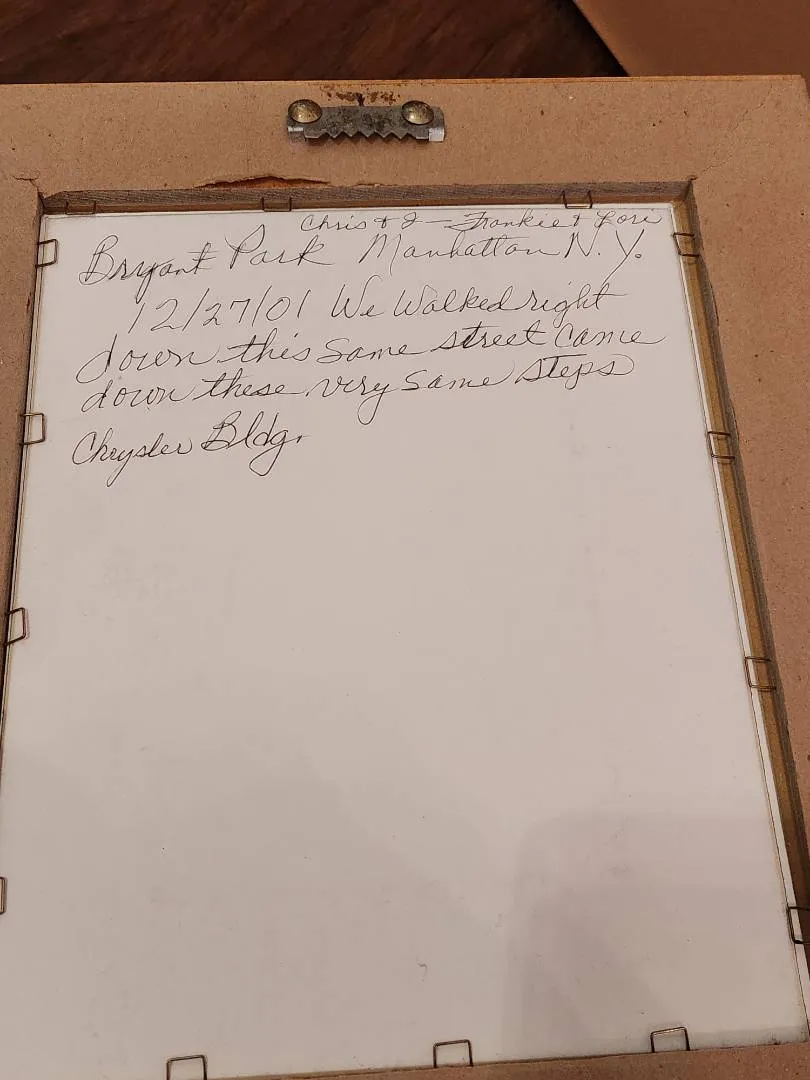 Chris & I - Frankie & Lori
Bryant Park Manhattan N.Y.
12/27/01 We Walked right
down this same street came
down these very same steps
Chrysler Bldg.